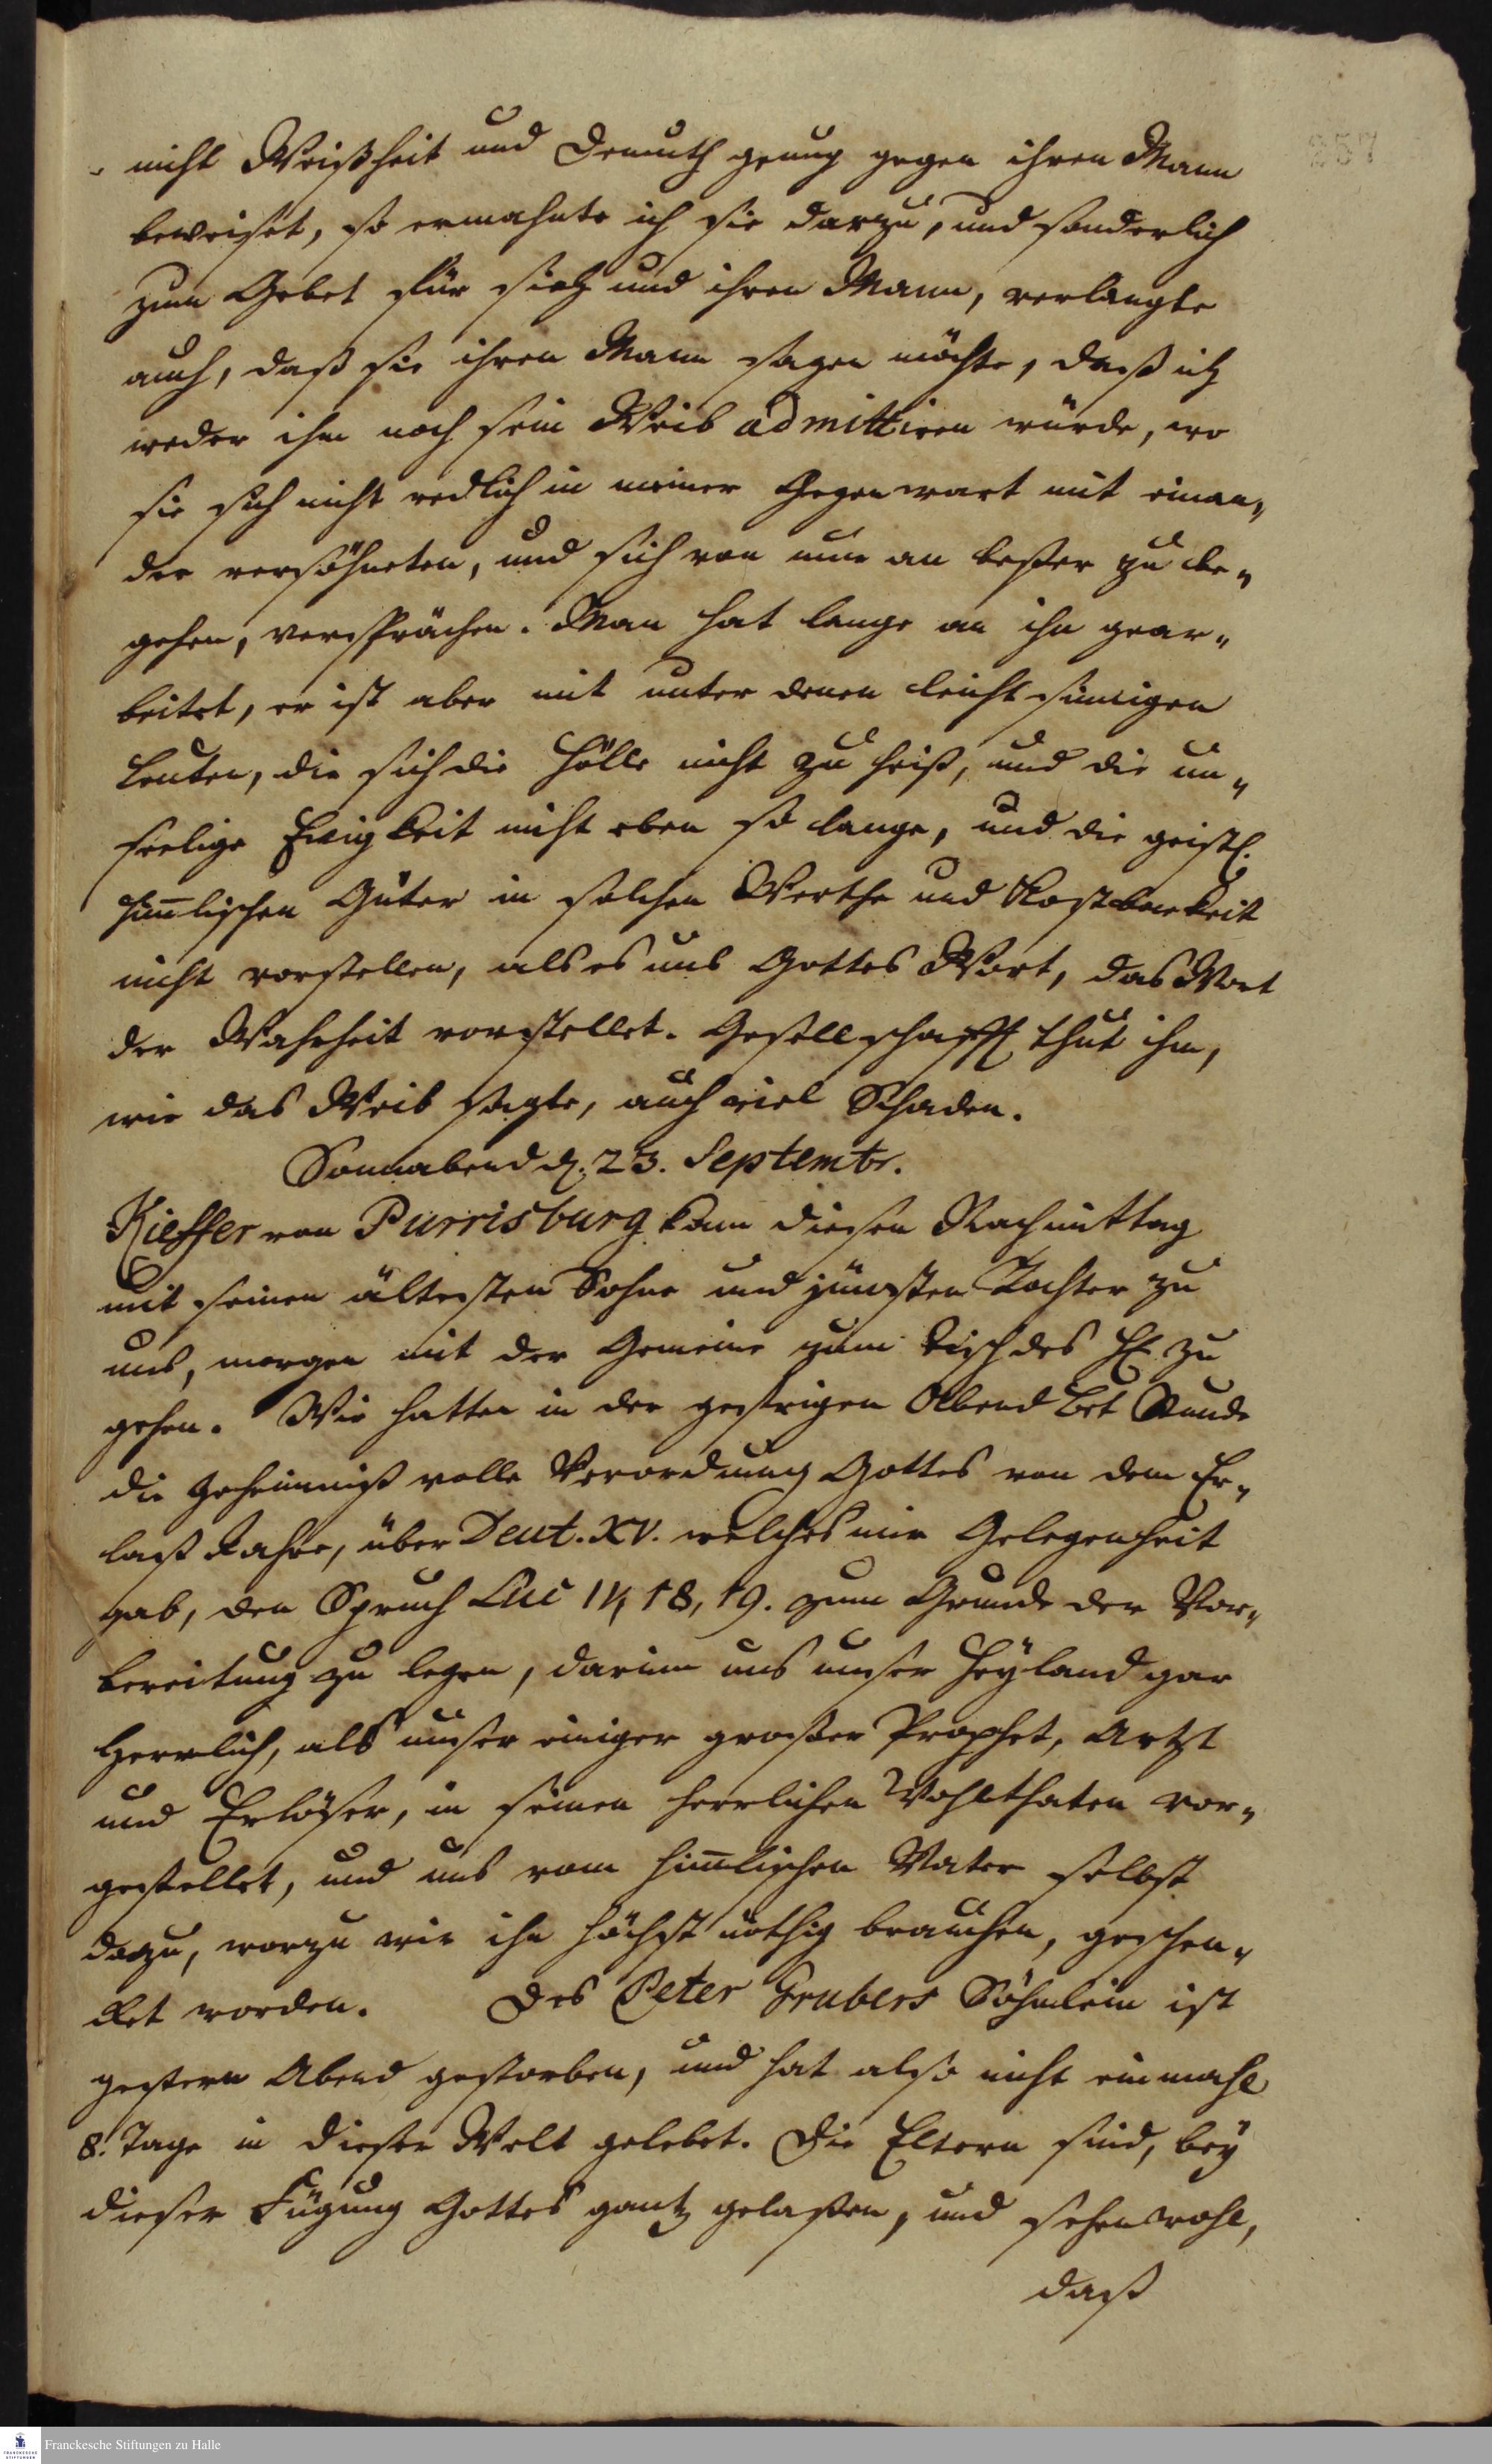 257
nicht Weißheit und Demuth genug gegen ihren Mann
beweiset, so ermahnte ich sie darzu, und sonderlich
zum Gebet für sich und ihren Mann, verlangte
auch, daß sie ihren Mann sagen möchte, daß ich
weder ihn noch sein Weib admittiren würde, wo
sie sich nicht redlich in meiner Gegenwart mit einan„
der versöhneten, und sich von nun an beßer zu be„
gehen, versprächen. Man hat lange an ihn gear„
beitet, er ist aber mit unter denen leichtsinnigen
Leuten, die sich die Hölle nicht zu heiß, und die un„
seelige Ewigkeit nicht eben so lange, und die geistl.
him̄lischen Güter in solchen Werthe und Kostbarkeit
nicht vorstellen, als es uns Gottes Wort, das Wort
der Wahrheit vorstellet. Gesellschafft thut ihm,
wie das Weib sagte, auch viel Schaden.
Sonnabend d. 23. Septembr.
Kieffer von Purrisburg kam diesen Nachmittag
mit seinen ältesten Sohne und jüngsten Tochter zu
uns, morgen mit der Gemeine zum Tisch des HE. zu
gehen. Wir hatten in der gestrigen Abend Bet Stunde
die Geheimniß volle Verordnung Gottes von dem Er„
laß Jahre, über Deut. XV. welches mir Gelegenheit
gab, den Spruch Luc IV, 18, 19. zum Grunde der Vor„
bereitung zu legen, darinn uns unser Heyland gar
herrlich, als unser einiger großer Prophet, Artzt
und Erlöser, in seinen herrlichen Wohlthaten vor„
gestellet, und uns vom him̄lischen Vater selbst
dazu, worzu wir ihn höchst nöthig brauchen, geschen„
cket worden. Des Peter Grubers Söhnlein ist
gestern Abend gestorben, und hat also nicht einmahl
8. Tage in dieser Welt gelebet. Die Eltern sind, bey
dieser Fügung Gottes gantz gelaßen, und sehen wohl,
daß
Franckesche Stiftungen zu Halle